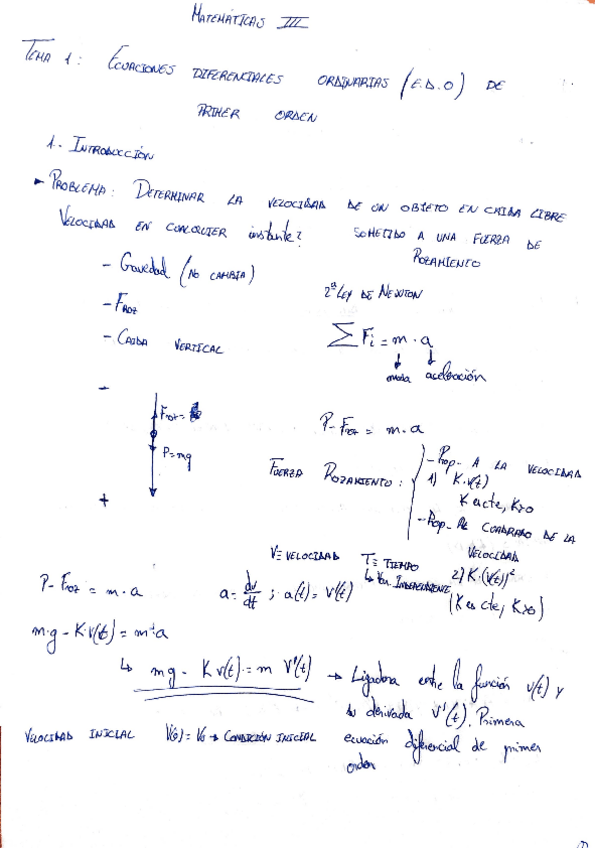 MATEMÁTICAS III
TEMA 1: ECUACIONES DIFERENCIALES ORDINARIAS (E.D.O) DE
PRIMER ORDEN
1.- INTRODUCCIÓN
PROBLEMA: DETERMINAR LA VELOCIDAD DE UN OBJETO EN CAIDA LIBRE
SOMETIDO A UNA FUERZA DE
ROZAMIENTO
VELOCIDAD EN CUALQUIER instante?
- Gravedad (NO CAMBIA)
- FROZ
- CAIDA VERTICAL
2ª LEY DE NEWTON
∑ Fi = m · a
masa aceleración
-
Froz =
P = mg
+
P - Froz = m · a
FUERZA ROZAMIENTO:
- Prop. A LA VELOCIDAD
1) K·v(t)
K es cte, K>0
- Prop. AL CUADRADO DE LA
VELOCIDAD
2) K·(v(t))²
(K es cte, K>0)
V ≡ VELOCIDAD
T ≡ TIEMPO
↳ Var. INDEPENDIENTE
P - Froz = m · a
a = dv/dt ; a(t) = V'(t)
m·g - K·v(t) = m·a
↳ mg - K v(t) = m V'(t) → Ligadura entre la función v(t) y
su derivada V'(t). Primera
ecuación diferencial de primer
orden
VELOCIDAD INICIAL V(0) = V0 → CONDICIÓN INICIAL